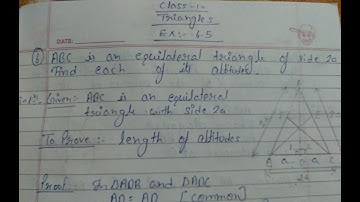 Class-10
Triangles
DATE: Ex:- 6.5
6) ABC is an equilateral triangle of side 2a
Find each of its altitudes.
Sol:- Given:- ABC is an equilateral
triangle with side 2a
To Prove:- length of altitudes
Proof:- In ΔADB and ΔADC
AD = AD [common]
A
B a D a C
2a